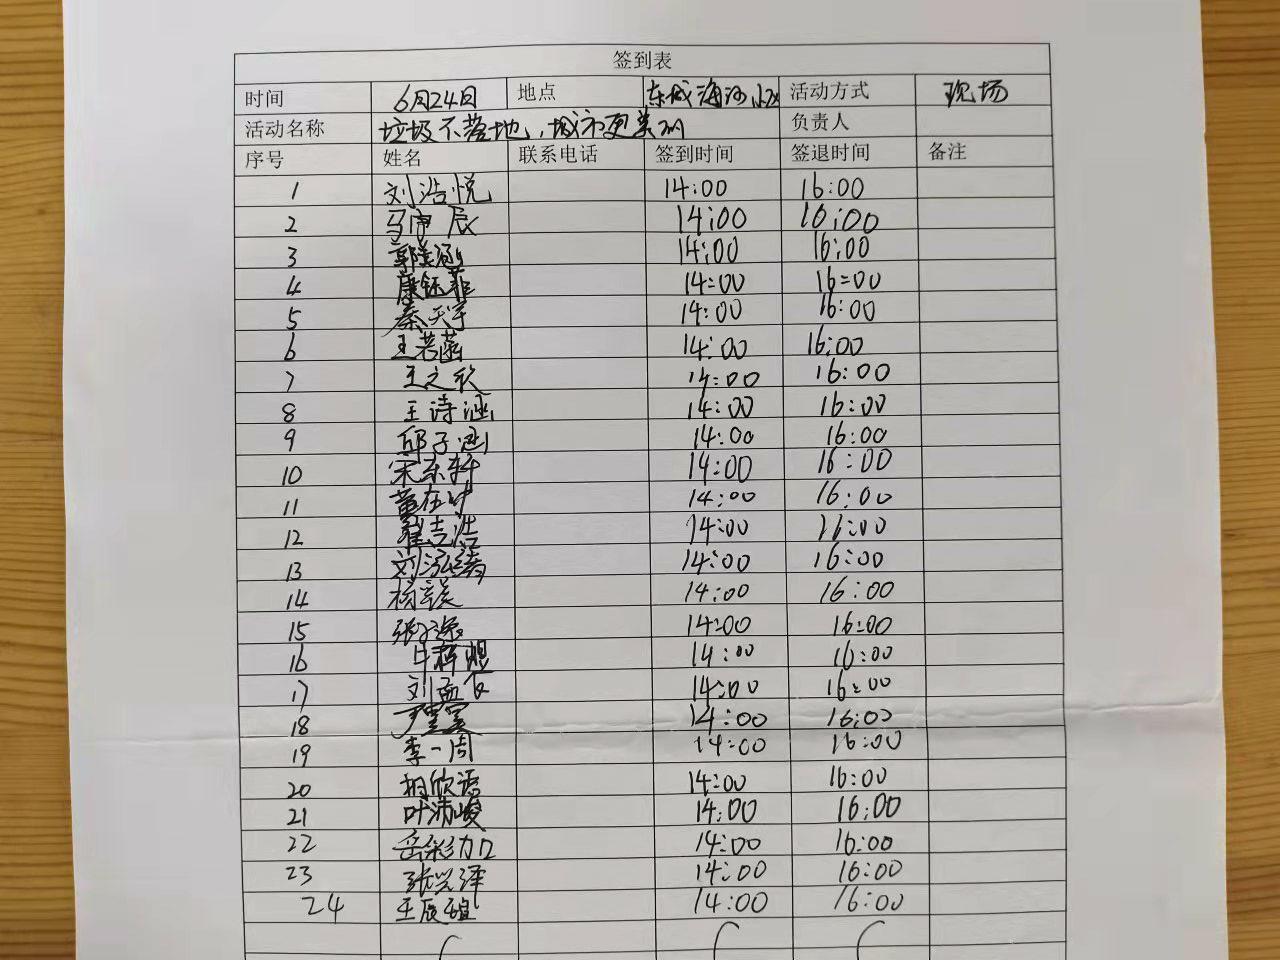 签到表
时间 6月24日 地点 东城海河小区 活动方式 现场
活动名称 垃圾不落地,城市更美丽 负责人
序号 姓名 联系电话 签到时间 签退时间 备注
1 刘浩悦 14:00 16:00
2 马宇辰 14:00 16:00
3 郭美涵 14:00 16:00
4 康钰菲 14:00 16:00
5 秦天宇 14:00 16:00
6 王若菡 14:00 16:00
7 王之欣 14:00 16:00
8 王诗涵 14:00 16:00
9 邱子涵 14:00 16:00
10 宋东轩 14:00 16:00
11 董在时 14:00 16:00
12 翟吉浩 14:00 16:00
13 刘泓绪 14:00 16:00
14 杨 14:00 16:00
15 张 14:00 16:00
16 牛梓煜 14:00 16:00
17 刘孟 14:00 16:00
18 尹 14:00 16:00
19 李一周 14:00 16:00
20 欣语 14:00 16:00
21 叶沛峻 14:00 16:00
22 岳彩 14:00 16:00
23 张兴泽 14:00 16:00
24 王辰 14:00 16:00